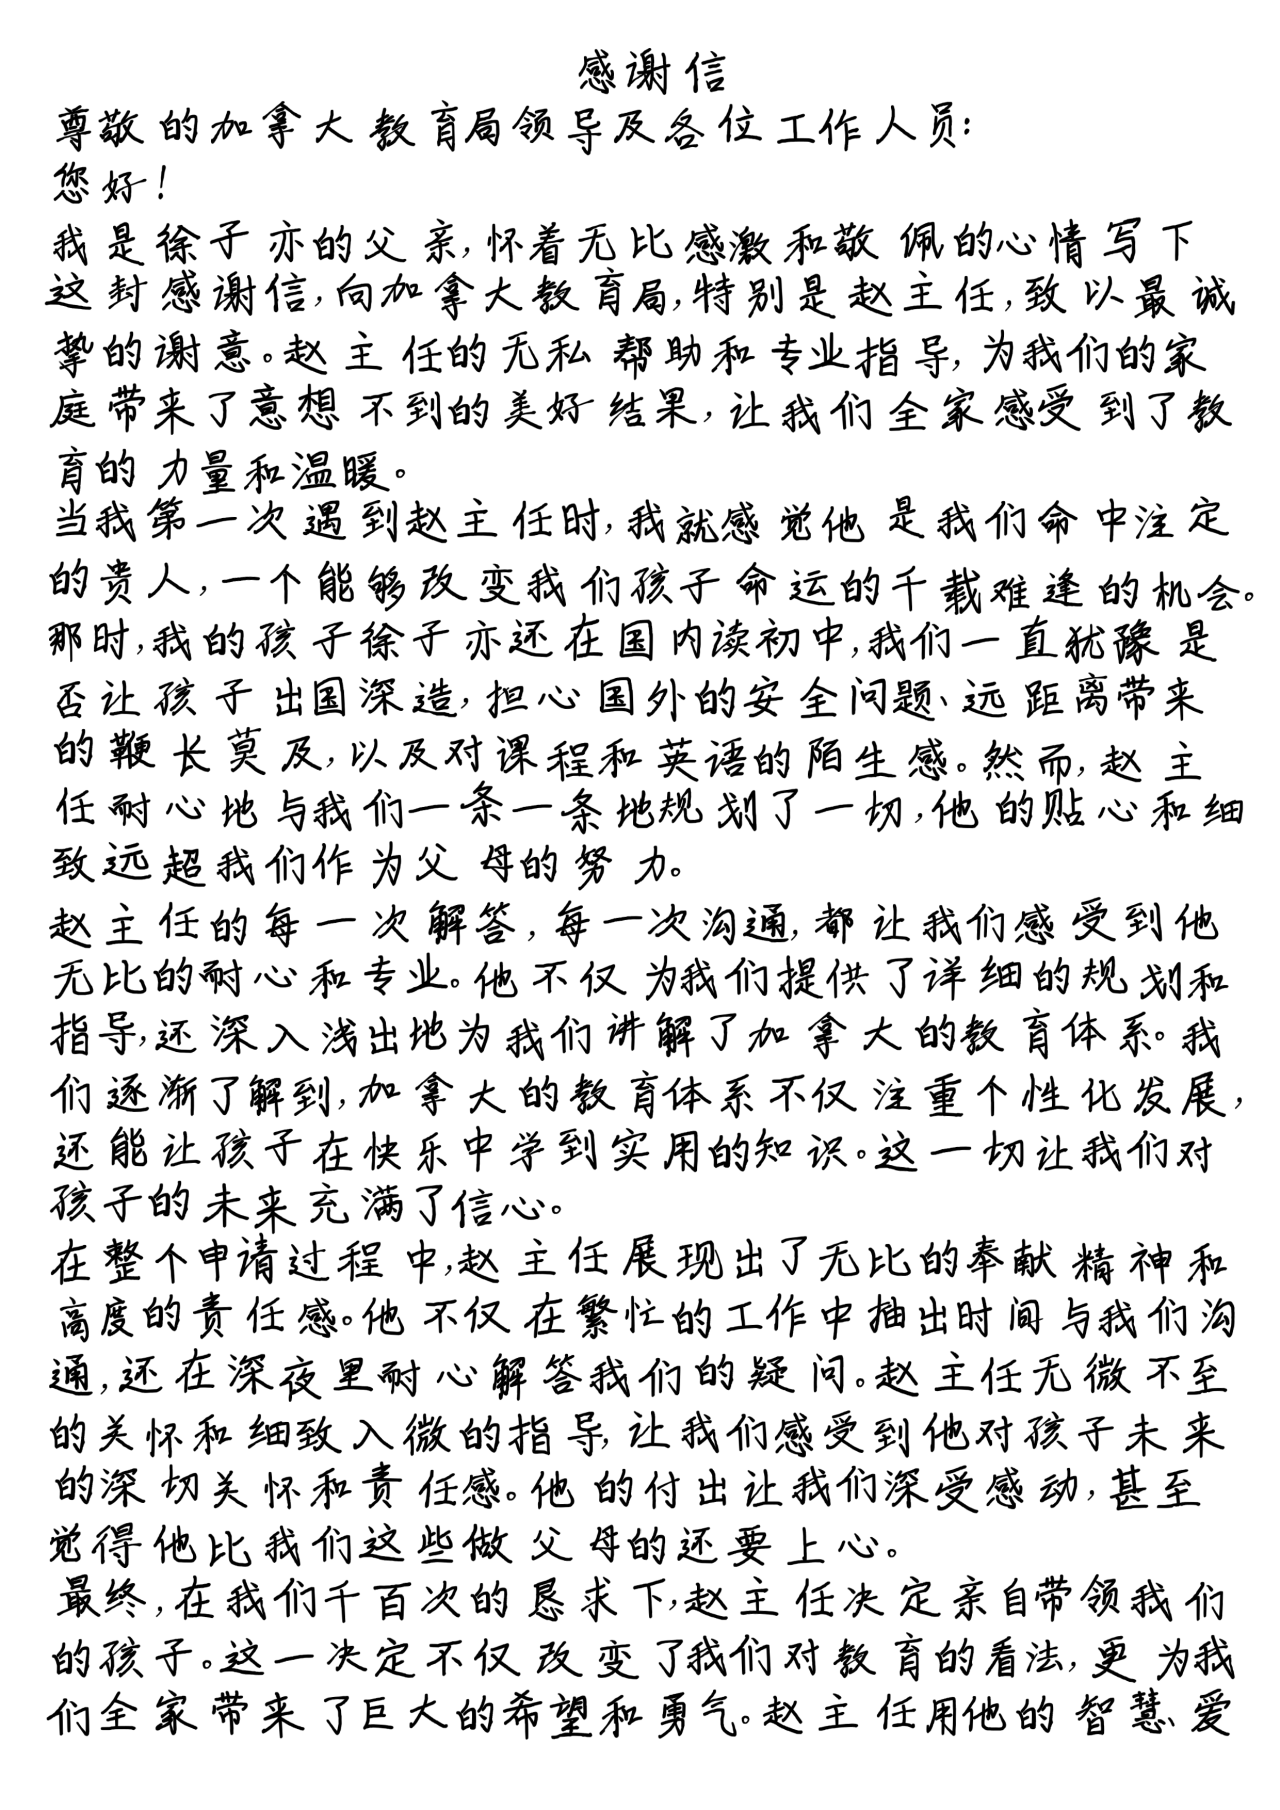 感谢信
尊敬的加拿大教育局领导及各位工作人员：
您好！
我是徐子亦的父亲，怀着无比感激和敬佩的心情写下
这封感谢信，向加拿大教育局，特别是赵主任，致以最诚
挚的谢意。赵主任的无私帮助和专业指导，为我们的家
庭带来了意想不到的美好结果，让我们全家感受到了教
育的力量和温暖。
当我第一次遇到赵主任时，我就感觉他是我们命中注定
的贵人，一个能够改变我们孩子命运的千载难逢的机会。
那时，我的孩子徐子亦还在国内读初中，我们一直犹豫是
否让孩子出国深造，担心国外的安全问题、远距离带来
的鞭长莫及，以及对课程和英语的陌生感。然而，赵主
任耐心地与我们一条一条地规划了一切，他的贴心和细
致远超我们作为父母的努力。
赵主任的每一次解答，每一次沟通，都让我们感受到他
无比的耐心和专业。他不仅为我们提供了详细的规划和
指导，还深入浅出地为我们讲解了加拿大的教育体系。我
们逐渐了解到，加拿大的教育体系不仅注重个性化发展，
还能让孩子在快乐中学到实用的知识。这一切让我们对
孩子的未来充满了信心。
在整个申请过程中，赵主任展现出了无比的奉献精神和
高度的责任感。他不仅在繁忙的工作中抽出时间与我们沟
通，还在深夜里耐心解答我们的疑问。赵主任无微不至
的关怀和细致入微的指导，让我们感受到他对孩子未来
的深切关怀和责任感。他的付出让我们深受感动，甚至
觉得他比我们这些做父母的还要上心。
最终，在我们千百次的恳求下，赵主任决定亲自带领我们
的孩子。这一决定不仅改变了我们对教育的看法，更为我
们全家带来了巨大的希望和勇气。赵主任用他的智慧、爱